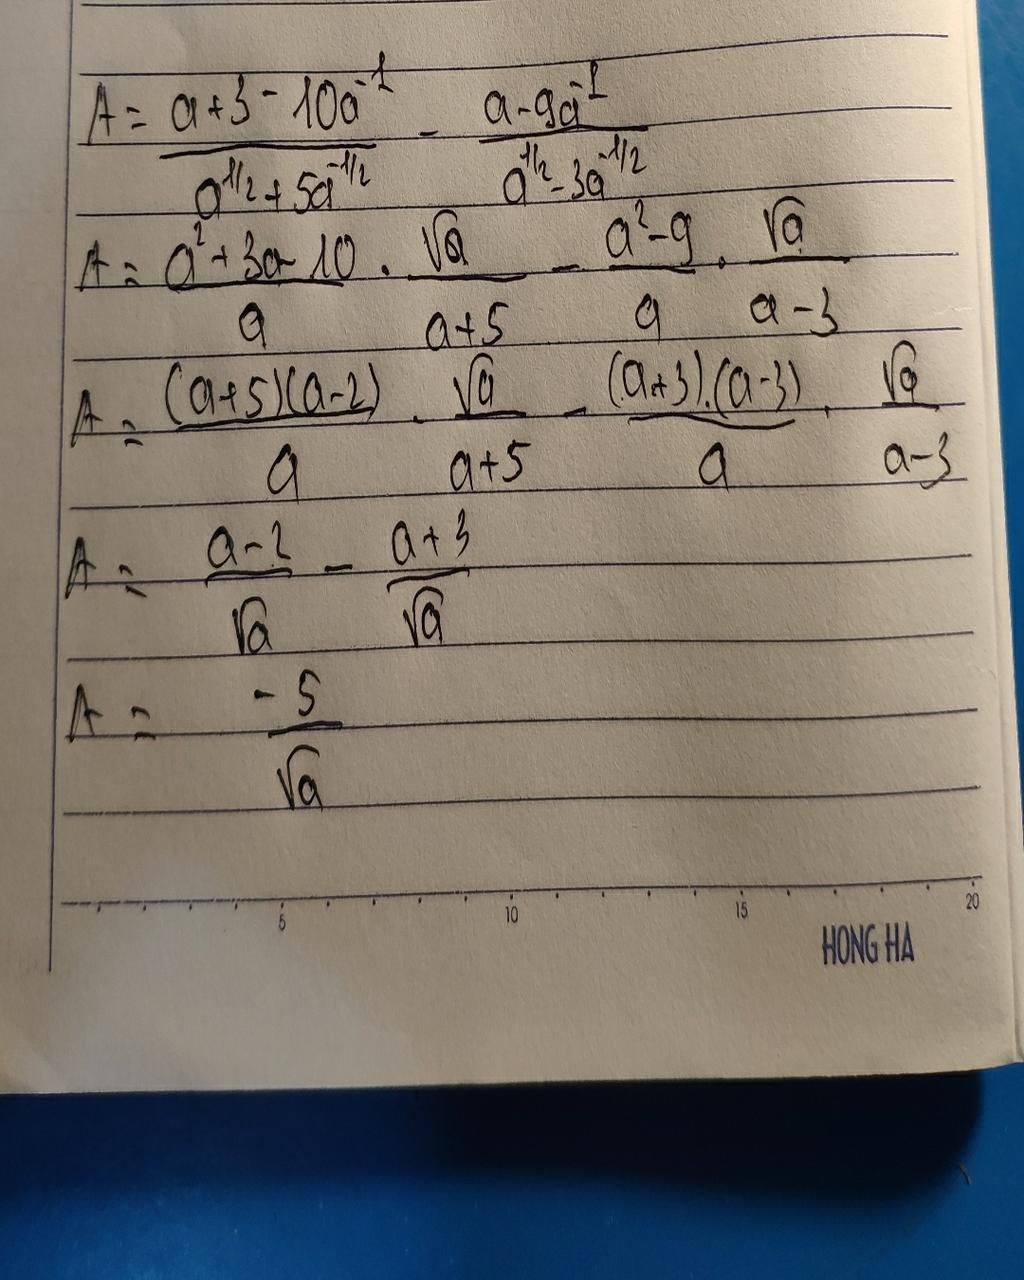 A = (a + 3 - 10a^-1)/(a^1/2 + 5a^-1/2) - (a - 9a^-1)/(a^1/2 - 3a^-1/2)
A = (a² + 3a - 10)/a . √a/(a + 5) - (a² - 9)/a . √a/(a - 3)
A = ((a+5)(a-2))/a . √a/(a+5) - ((a+3).(a-3))/a . √a/(a-3)
A = (a - 2)/√a - (a + 3)/√a
A = -5/√a
5 10 15 20
HONG HA